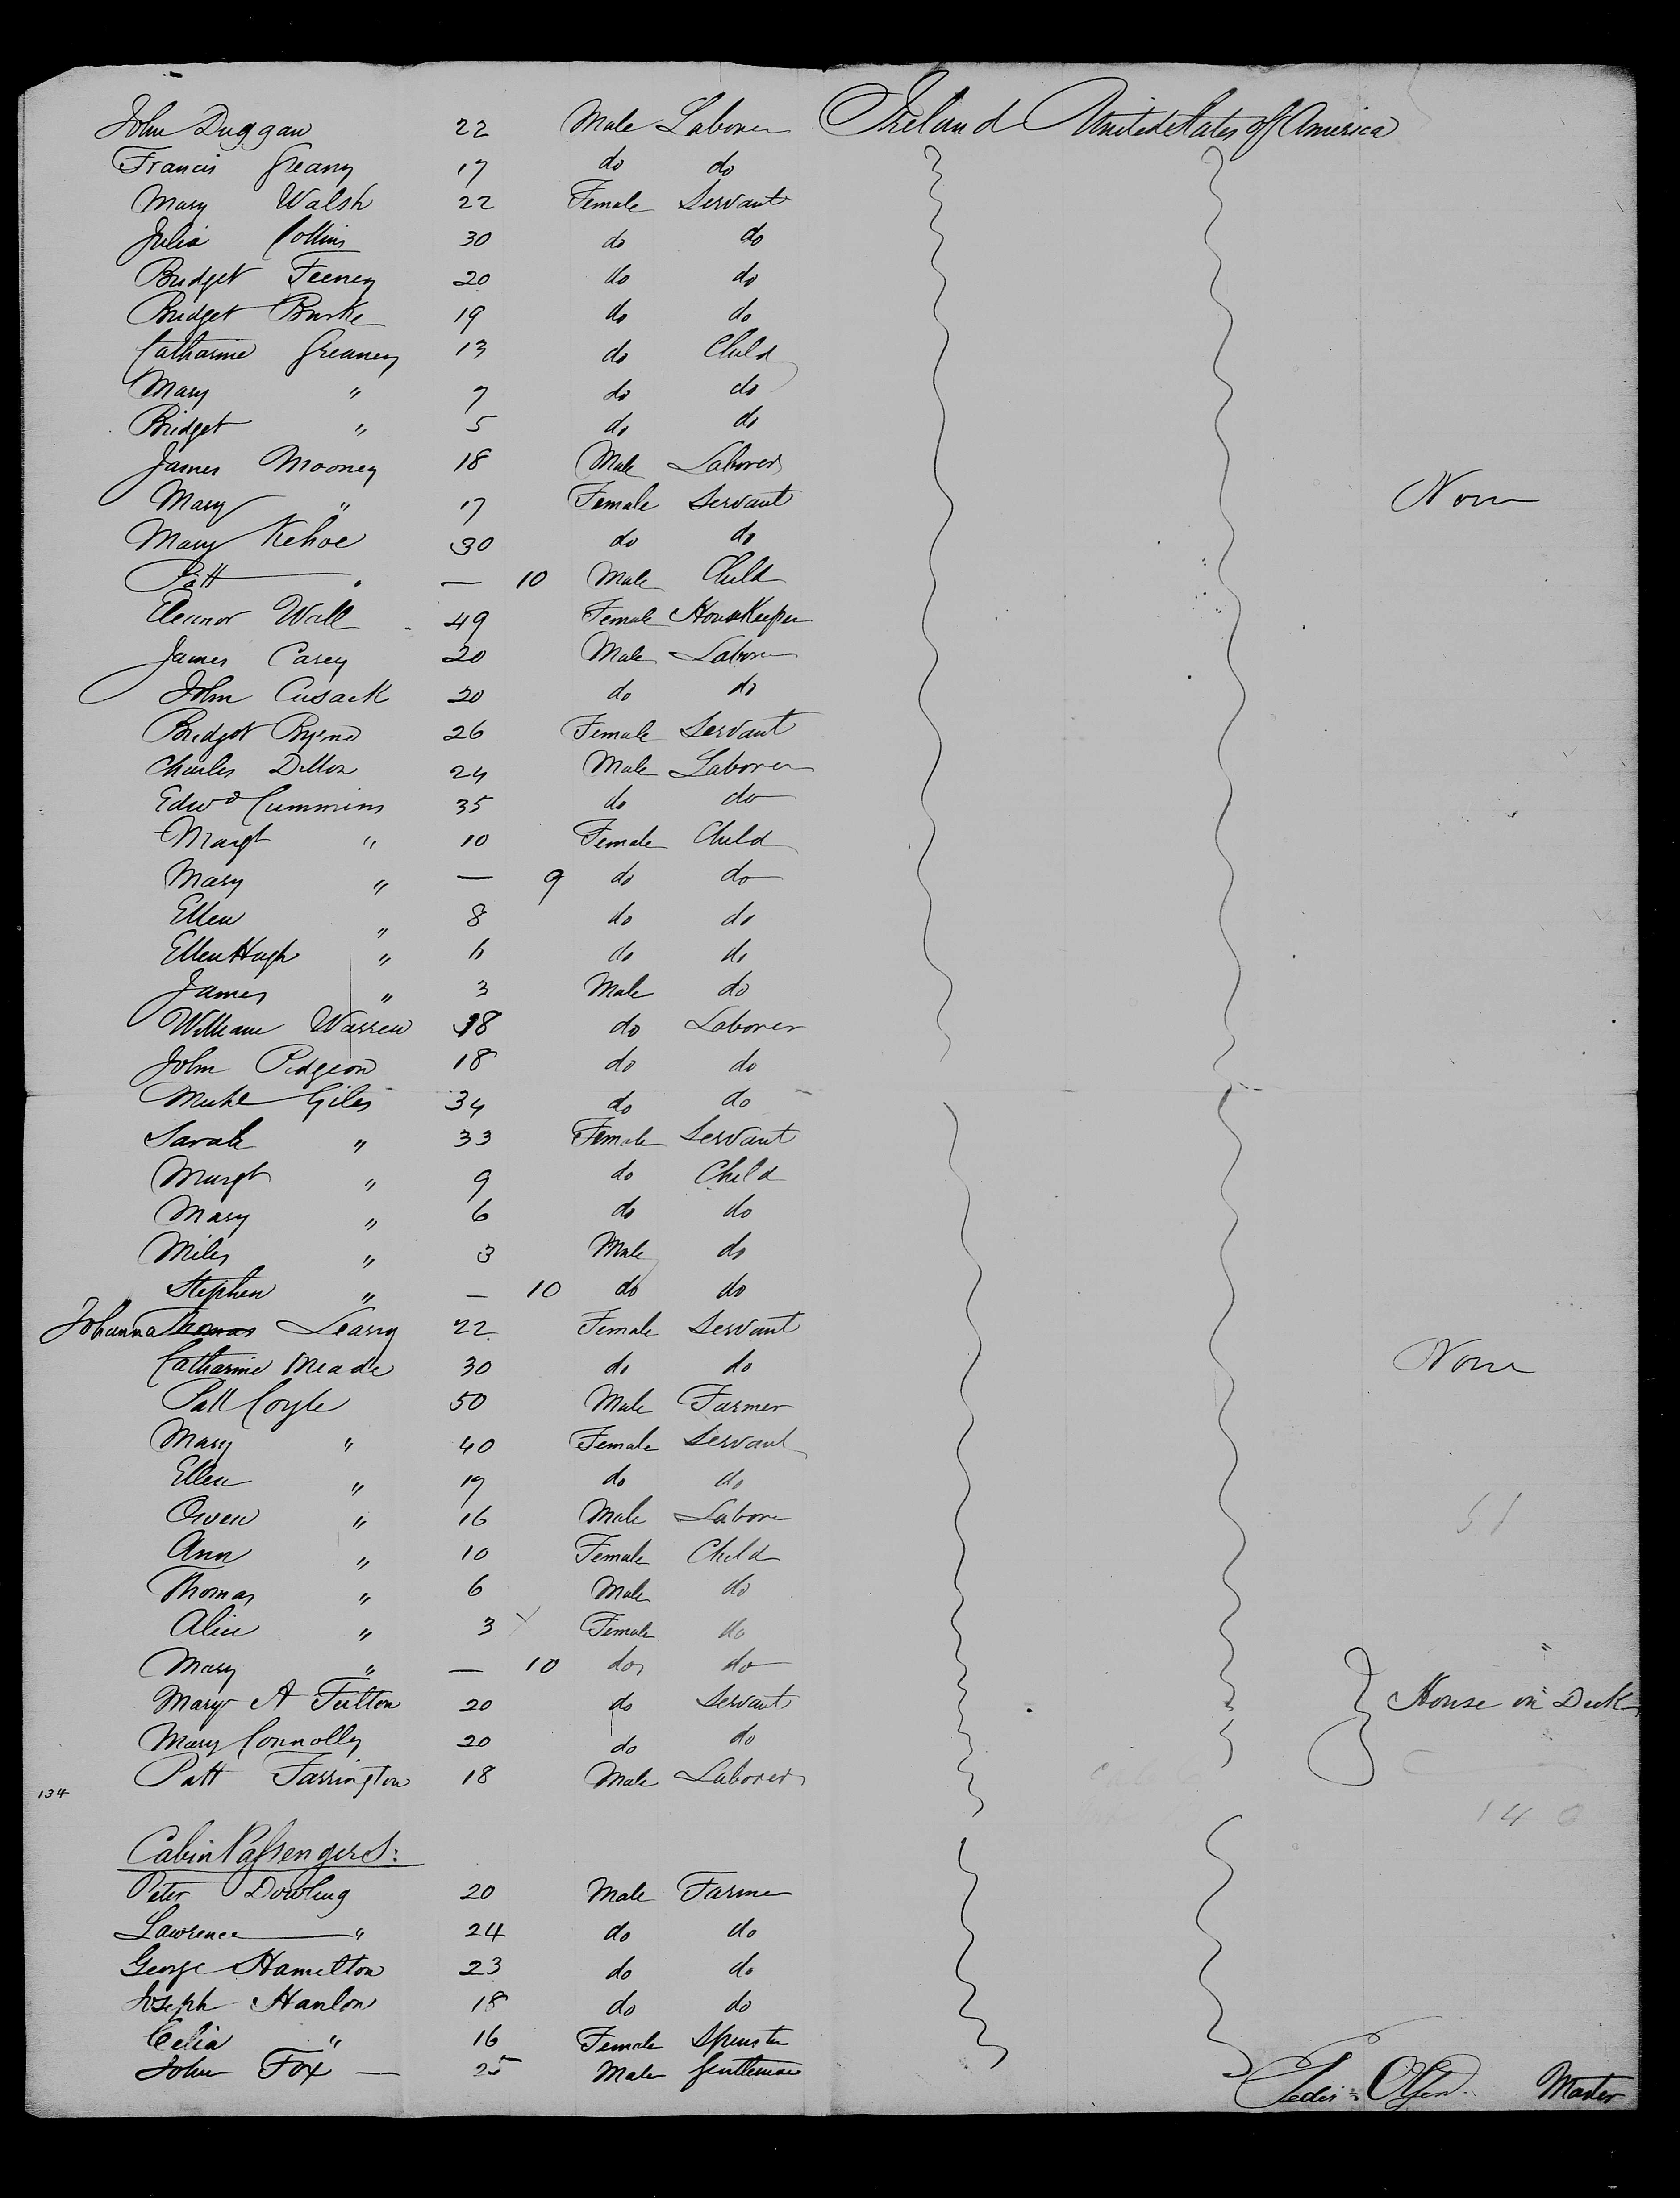 John Duggan 22 Male Laborer Ireland United States of America
Francis Greany 17 do do
Mary Walsh 22 Female Servant
Julia Collins 30 do do
Bridget Feeney 20 do do
Bridget Burke 19 do do
Catharine Greaney 13 do Child
Mary " 7 do do
Bridget " 5 do do
James Mooney 18 Male Laborer
Mary " 17 Female Servant None
Mary Kehoe 30 do do
Patt " — 10 Male Child
Eleanor Wall 49 Female HouseKeeper
James Casey 20 Male Laborer
John Cusack 20 do do
Bridget Byrne 26 Female Servant
Charles Dillon 24 Male Laborer
Edwd Cummins 35 do do
Margt " 10 Female Child
Mary " — 9 do do
Ellen " 8 do do
Ellen Hugh " 6 do do
James " 3 Male do
William Warren 18 do Laborer
John Pidgeon 18 do do
Giles 34 do do
Sarah " 33 Female Servant
Margt " 9 do Child
Mary " 6 do do
Miles " 3 Male do
Stephen " — 10 do do
Johanna Thomas Leary 22 Female Servant
Catharine Meade 30 do do None
Patt Coyle 50 Male Farmer
Mary " 40 Female Servant
Ellen " 19 do do
Owen " 16 Male Labore
Ann " 10 Female Child 51
Thomas " 6 Male do
Alice " 3 Female do
Mary " — 10 do do
Mary A Fulton 20 do Servant House on Deck
Mary Connolly 20 do do
Patt Farrington 18 Male Laborer
134
140
Cabin Passengers:
Peter Dowling 20 Male Farmer
Lawrence " 24 do do
George Hamilton 23 do do
Joseph Hanlon 18 do do
Celia " 16 Female Spinster
John Fox — 25 Male Gentleman
Olsen Master